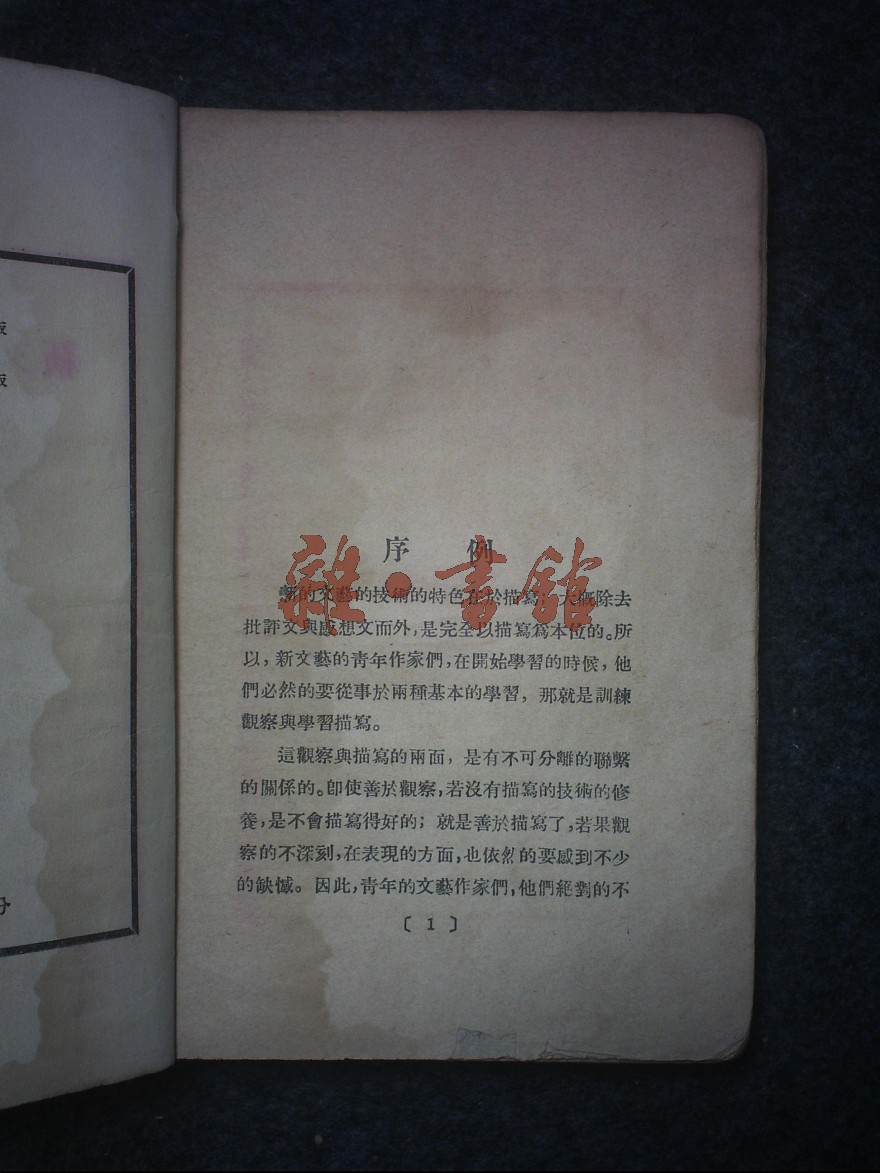 序 例
雜·書館
新的文藝的技術的特色在於描寫;大概除去
批評文與感想文而外,是完全以描寫爲本位的。所
以,新文藝的靑年作家們,在開始學習的時候,他
們必然的要從事於兩種基本的學習,那就是訓練
觀察與學習描寫。
這觀察與描寫的兩面,是有不可分離的聯繫
的關係的。卽使善於觀察,若沒有描寫的技術的修
養,是不會描寫得好的;就是善於描寫了,若果觀
察的不深刻,在表現的方面,也依然的要感到不少
的缺憾。因此,靑年的文藝作家們,他們絕對的不
〔 1 〕